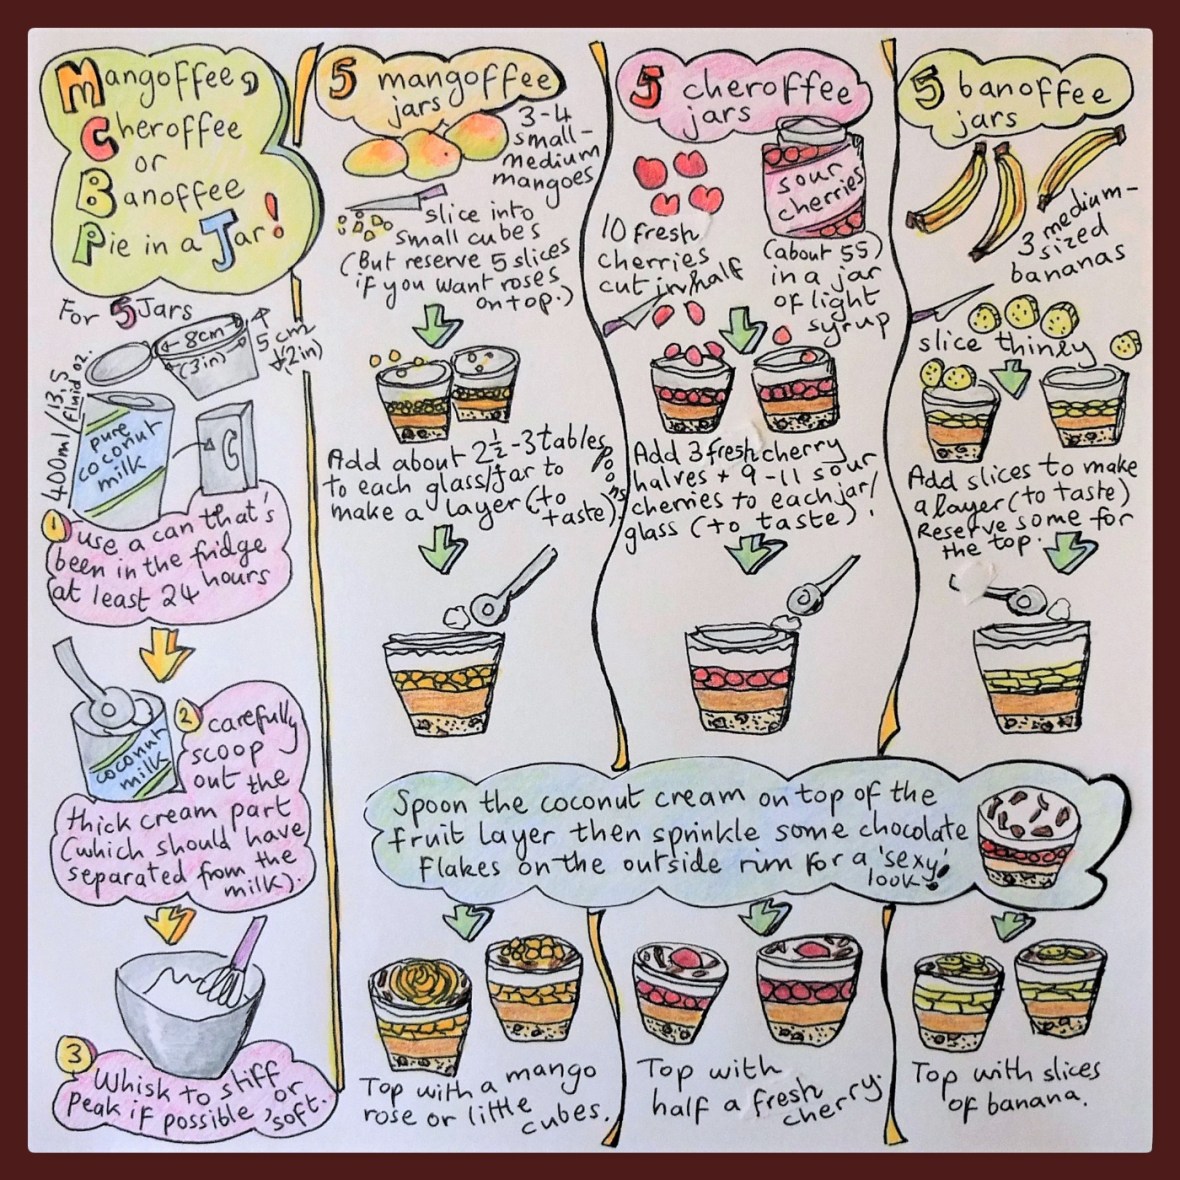 Mangoffee,
Cheroffee
or
Banoffee
Pie in a Jar!
For 5 Jars
8cm
(3in)
5cm
(2in)
400ml/13.5
fluid oz.
pure
coconut
milk
1 use a can that's
been in the fridge
at least 24 hours
coconut
milk
2 carefully
scoop
out the
thick cream part
(which should have
separated from the
milk).
3 Whisk to stiff
peak if possible, or
soft.
5 mangoffee
jars
3-4
small-
medium
mangoes
slice into
small cubes
(But reserve 5 slices
if you want roses
on top.)
Add about 2½-3 tables
poons
to each glass/jar to
make a layer (to
taste)
5 cheroffee
jars
sour
cherries
10 fresh
cherries
cut in half
(about 55)
in a jar
of light
syrup
Add 3 fresh cherry
halves + 9-11 sour
cherries to each jar/
glass (to taste).
5 banoffee
jars
3 medium-
sized
bananas
slice thinly
Add slices to make
a layer (to taste)
Reserve some for
the top.
Spoon the coconut cream on top of the
fruit layer then sprinkle some chocolate
flakes on the outside rim for a 'sexy'
look!
Top with a mango
rose or little
cubes.
Top with
half a fresh
cherry.
Top with slices
of banana.